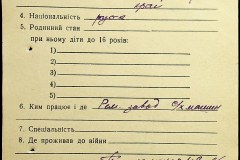 4. Національність руська
5. Родинний стан
при ньому діти до 16 років:
1)
2)
3)
4)
5)
6. Ким працює і де Рем. завод с/х машин
7. Спеціальність
8. Де проживав до війни